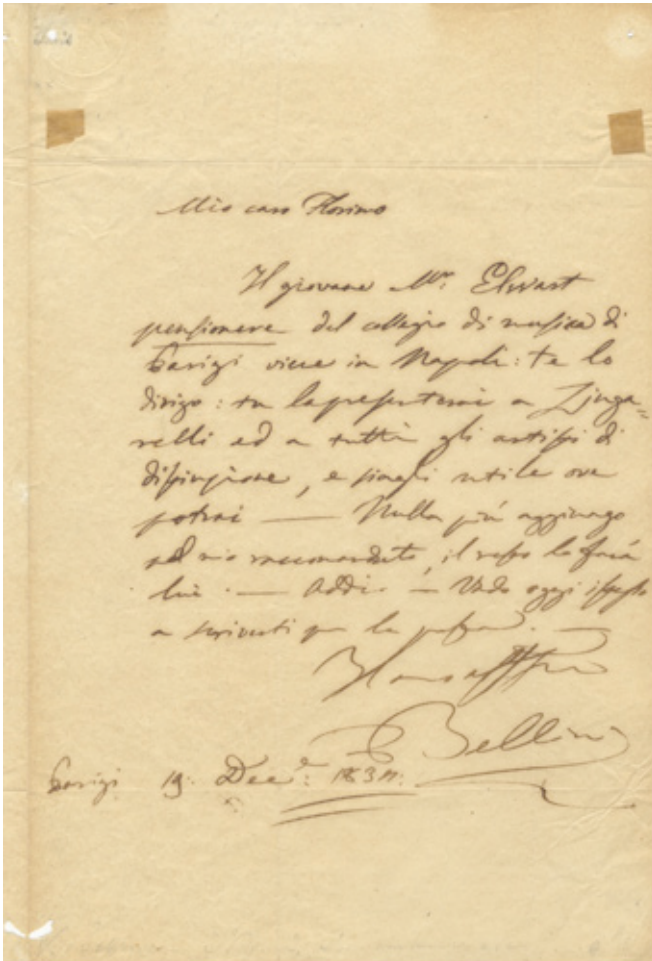 Mio caro Florimo
Il giovane Mr. Elwart
pensionere del collegio di musica di
Parigi viene in Napoli: te lo
dirigo: tu lo presenterai a Zinga=
relli ed a tutti gli artisti di
distinzione, e siagli utile ove
potrai — Nulla più aggiungo
al mio raccomandato, il resto lo farà
lui. — Addio — Vado oggi istesso
a scriverti per la posta. —
Il tuo
Bellini
Parigi 19: Dec.e: 1834: